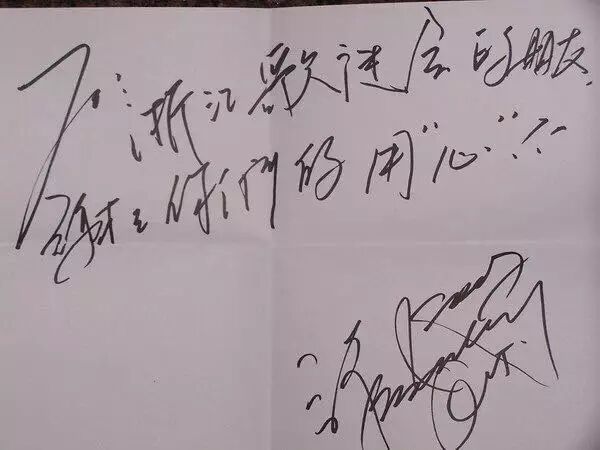 To: 浙江歌迷会的朋友
謝謝你們的用"心"!!